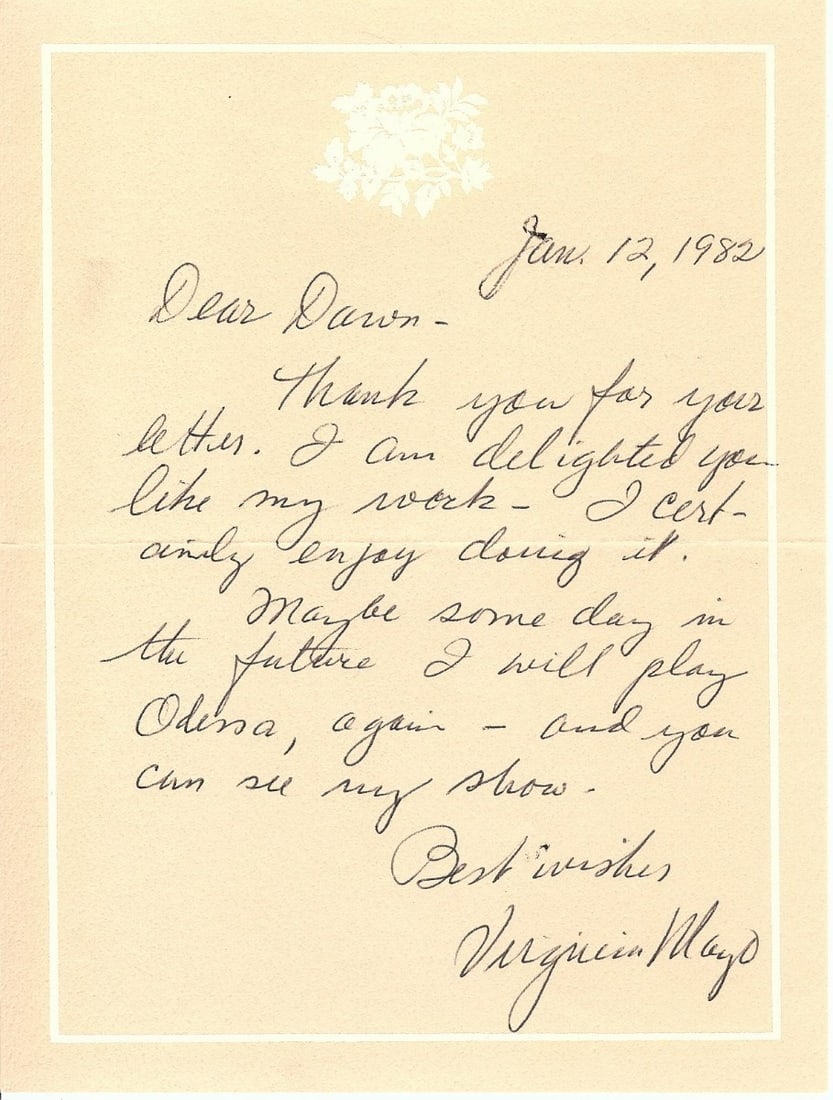 Jan. 12, 1982
Dear Dawn-
Thank you for your
letter. I am delighted you
like my work- I cert-
ainly enjoy doing it.
Maybe some day in
the future I will play
Odessa, again - and you
can see my show.
Best wishes
Virginia Mayo